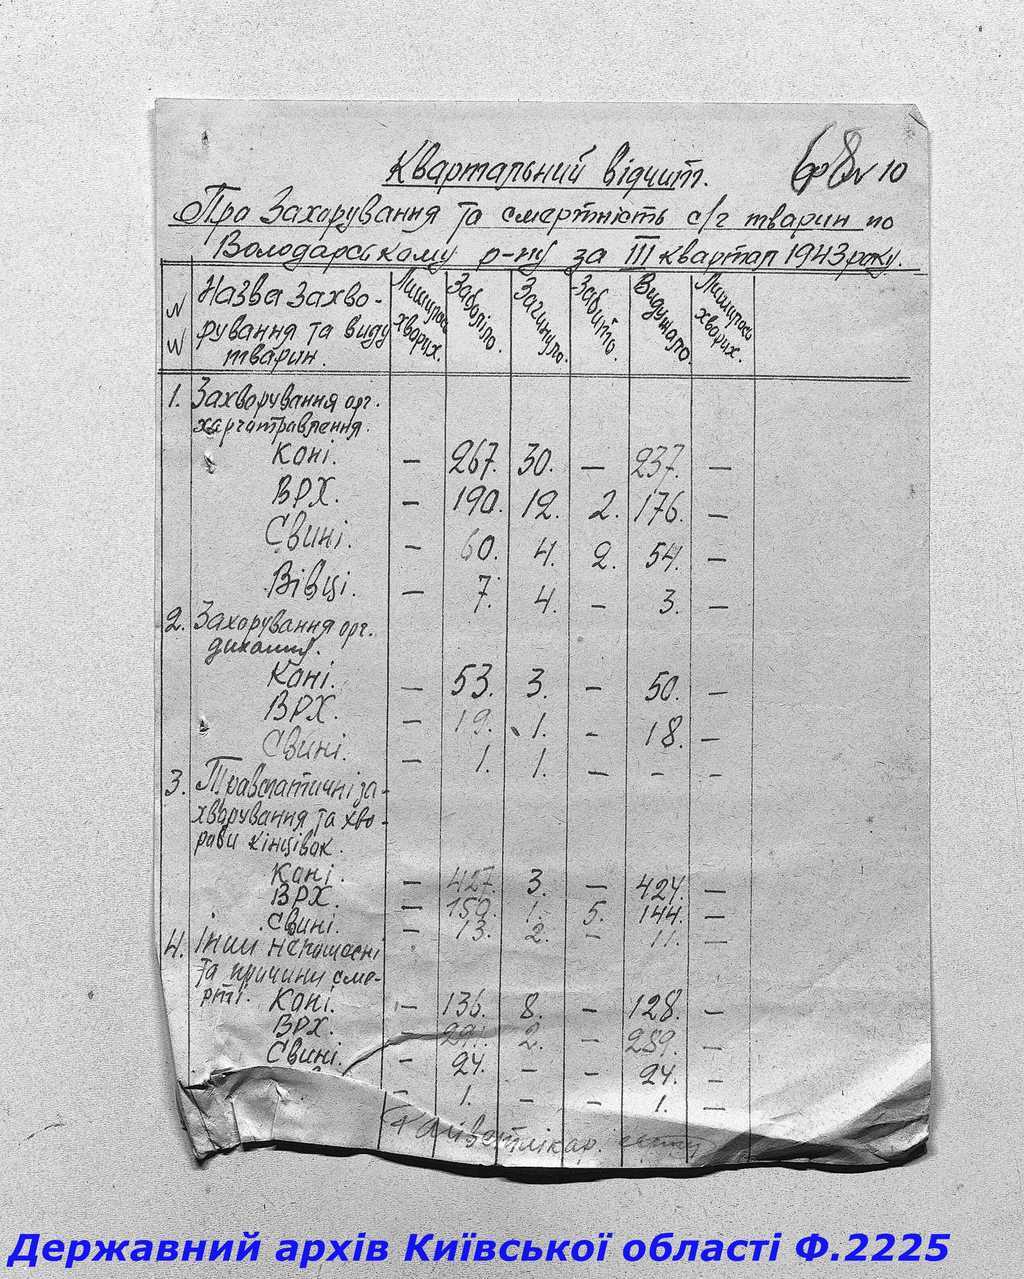 Квартальний відчит.
68 10
Про Захорування та смертність с/г тварин по
Володарському р-ну за III квартал 1943 року.
N N Назва захво- Лишилось Заболіло. Загинуло. Забито. Видужало. Лишилось
рування та виду хворих. хворих.
тварин.
1. Захворування орг.
харчотравлення.
Коні. — 267. 30. — 237. —
ВРХ. — 190. 12. 2. 176. —
Свині. — 60. 4. 2. 54. —
Вівці. — 7. 4. — 3. —
2. Захорування орг.
дихання.
Коні. — 53. 3. — 50. —
ВРХ. — 19. 1. — 18. —
Свині. — 1. 1. — — —
3. Травматичні за-
хворування та хво-
роби кінцівок.
Коні. — 427. 3. — 424. —
ВРХ. — 150. 1. 5. 144. —
Свині. — 13. 2. — 11. —
4. Інши незаразні
та причини сме-
рті. Коні. — 136. 8. — 128. —
ВРХ. — 291. 2. — 289. —
Свині. — 24. — — 24. —
— 1. — — 1. —
Держaвний архів Київської області Ф.2225